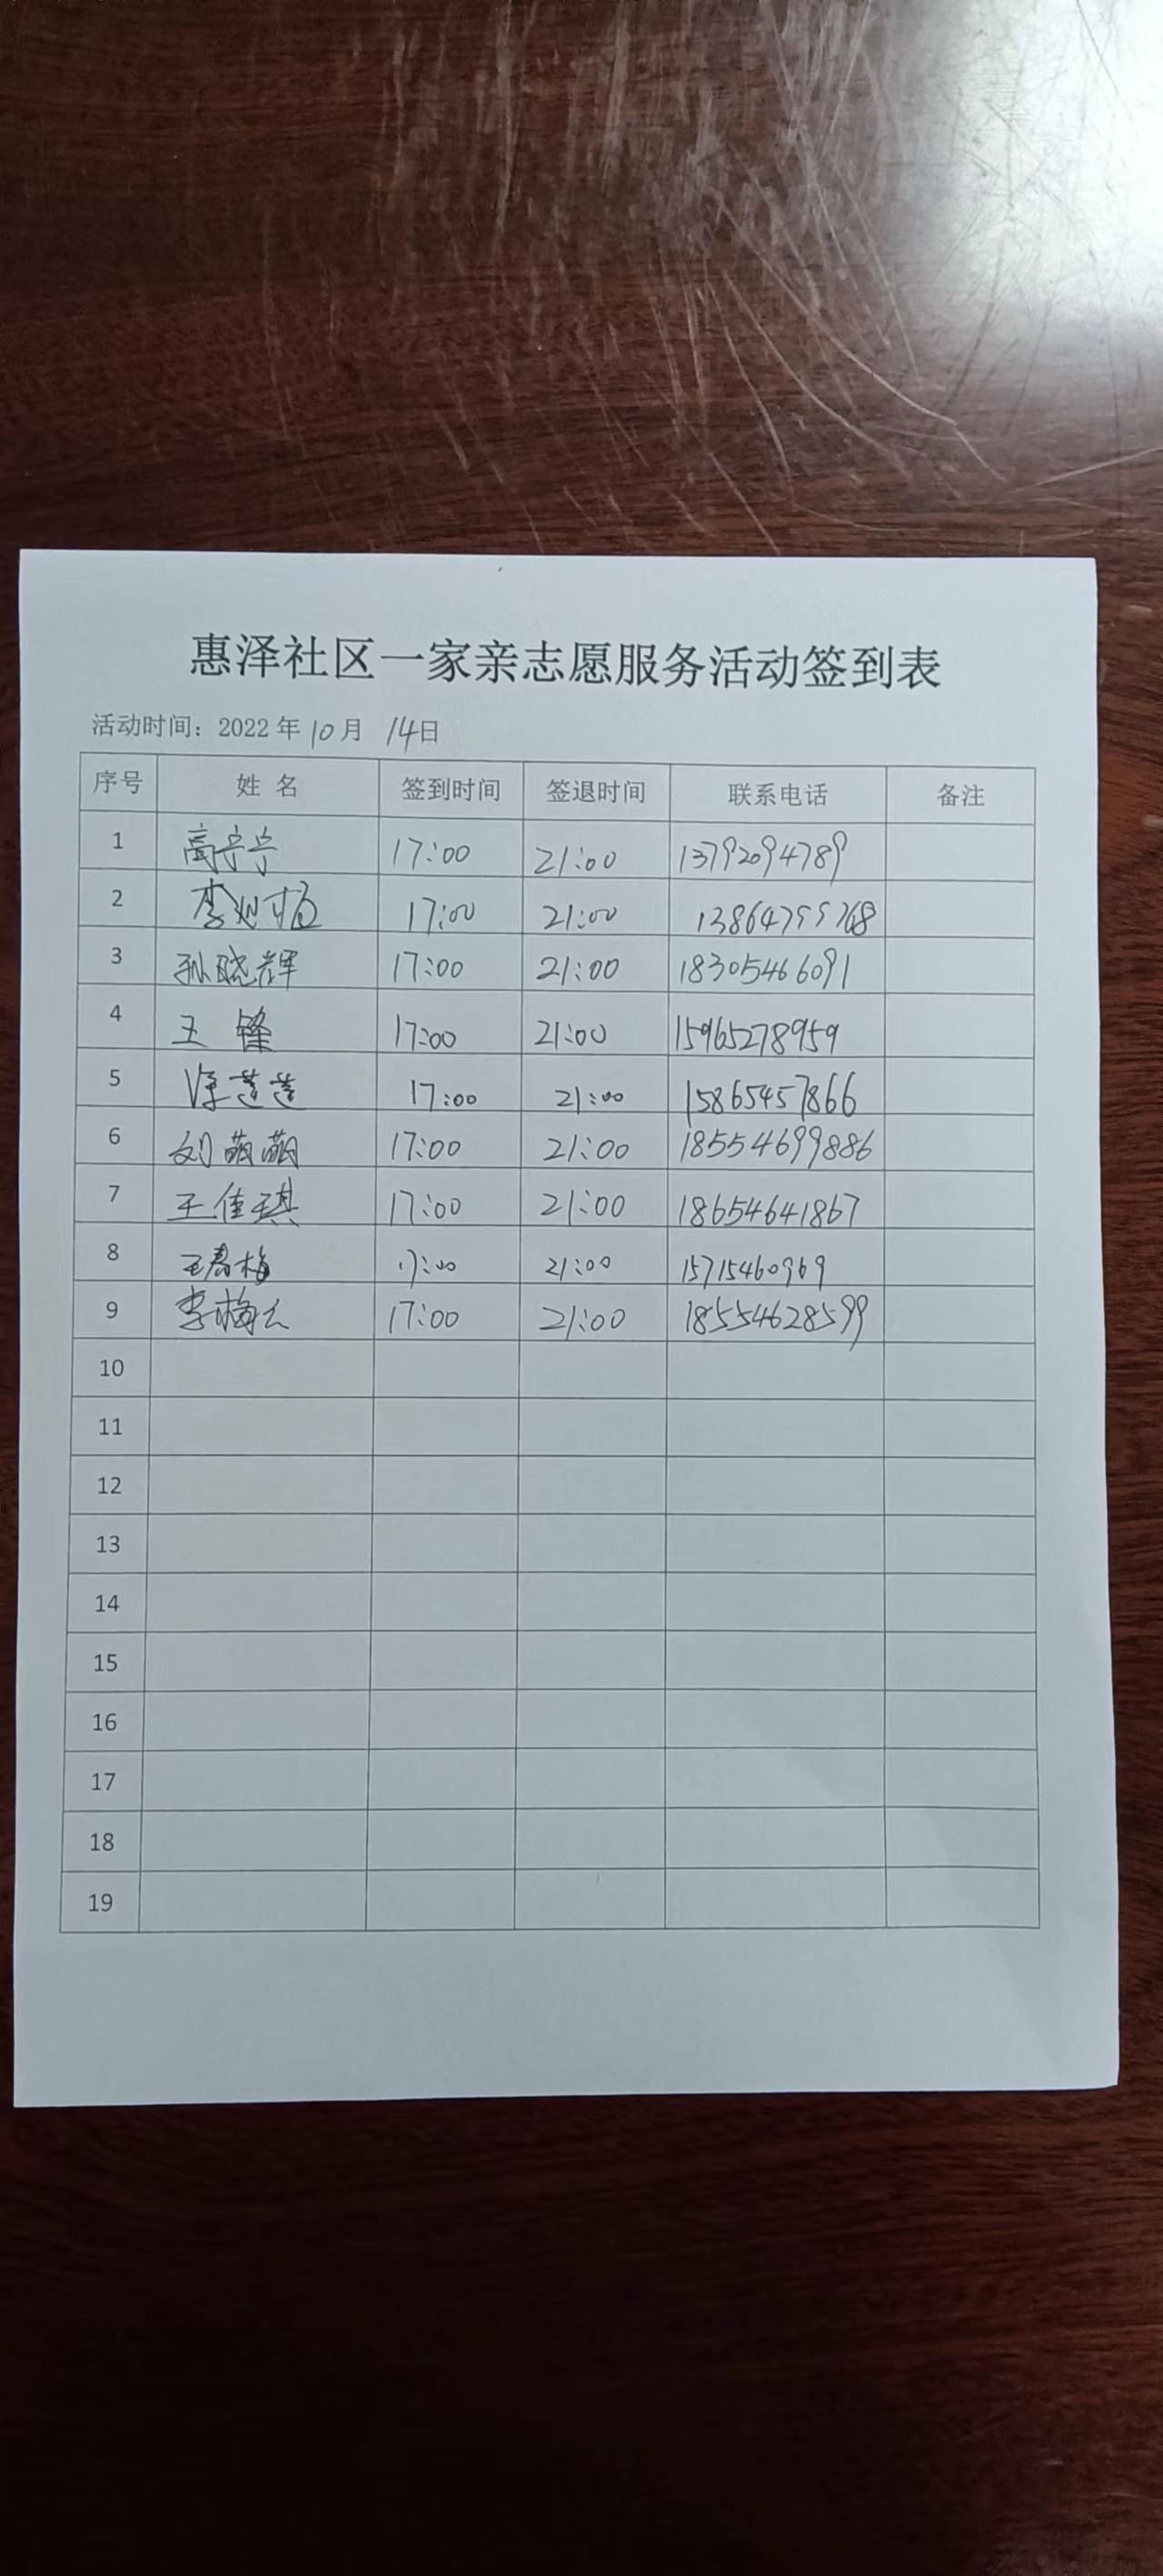 惠泽社区一家亲志愿服务活动签到表
活动时间：2022年10月 14日
序号 姓 名 签到时间 签退时间 联系电话 备注
1 高宁宁 17:00 21:00 13792094789
2 李 17:00 21:00
3 孙晓辉 17:00 21:00 18305466091
4 王 锋 17:00 21:00 15965278959
5 莲莲 17:00 21:00 15865457866
6 刘萌萌 17:00 21:00 18554699886
7 王佳琪 17:00 21:00 18654641867
8 王春梅 17:00 21:00 15715460969
9 李梅 17:00 21:00 18554628599
10
11
12
13
14
15
16
17
18
19